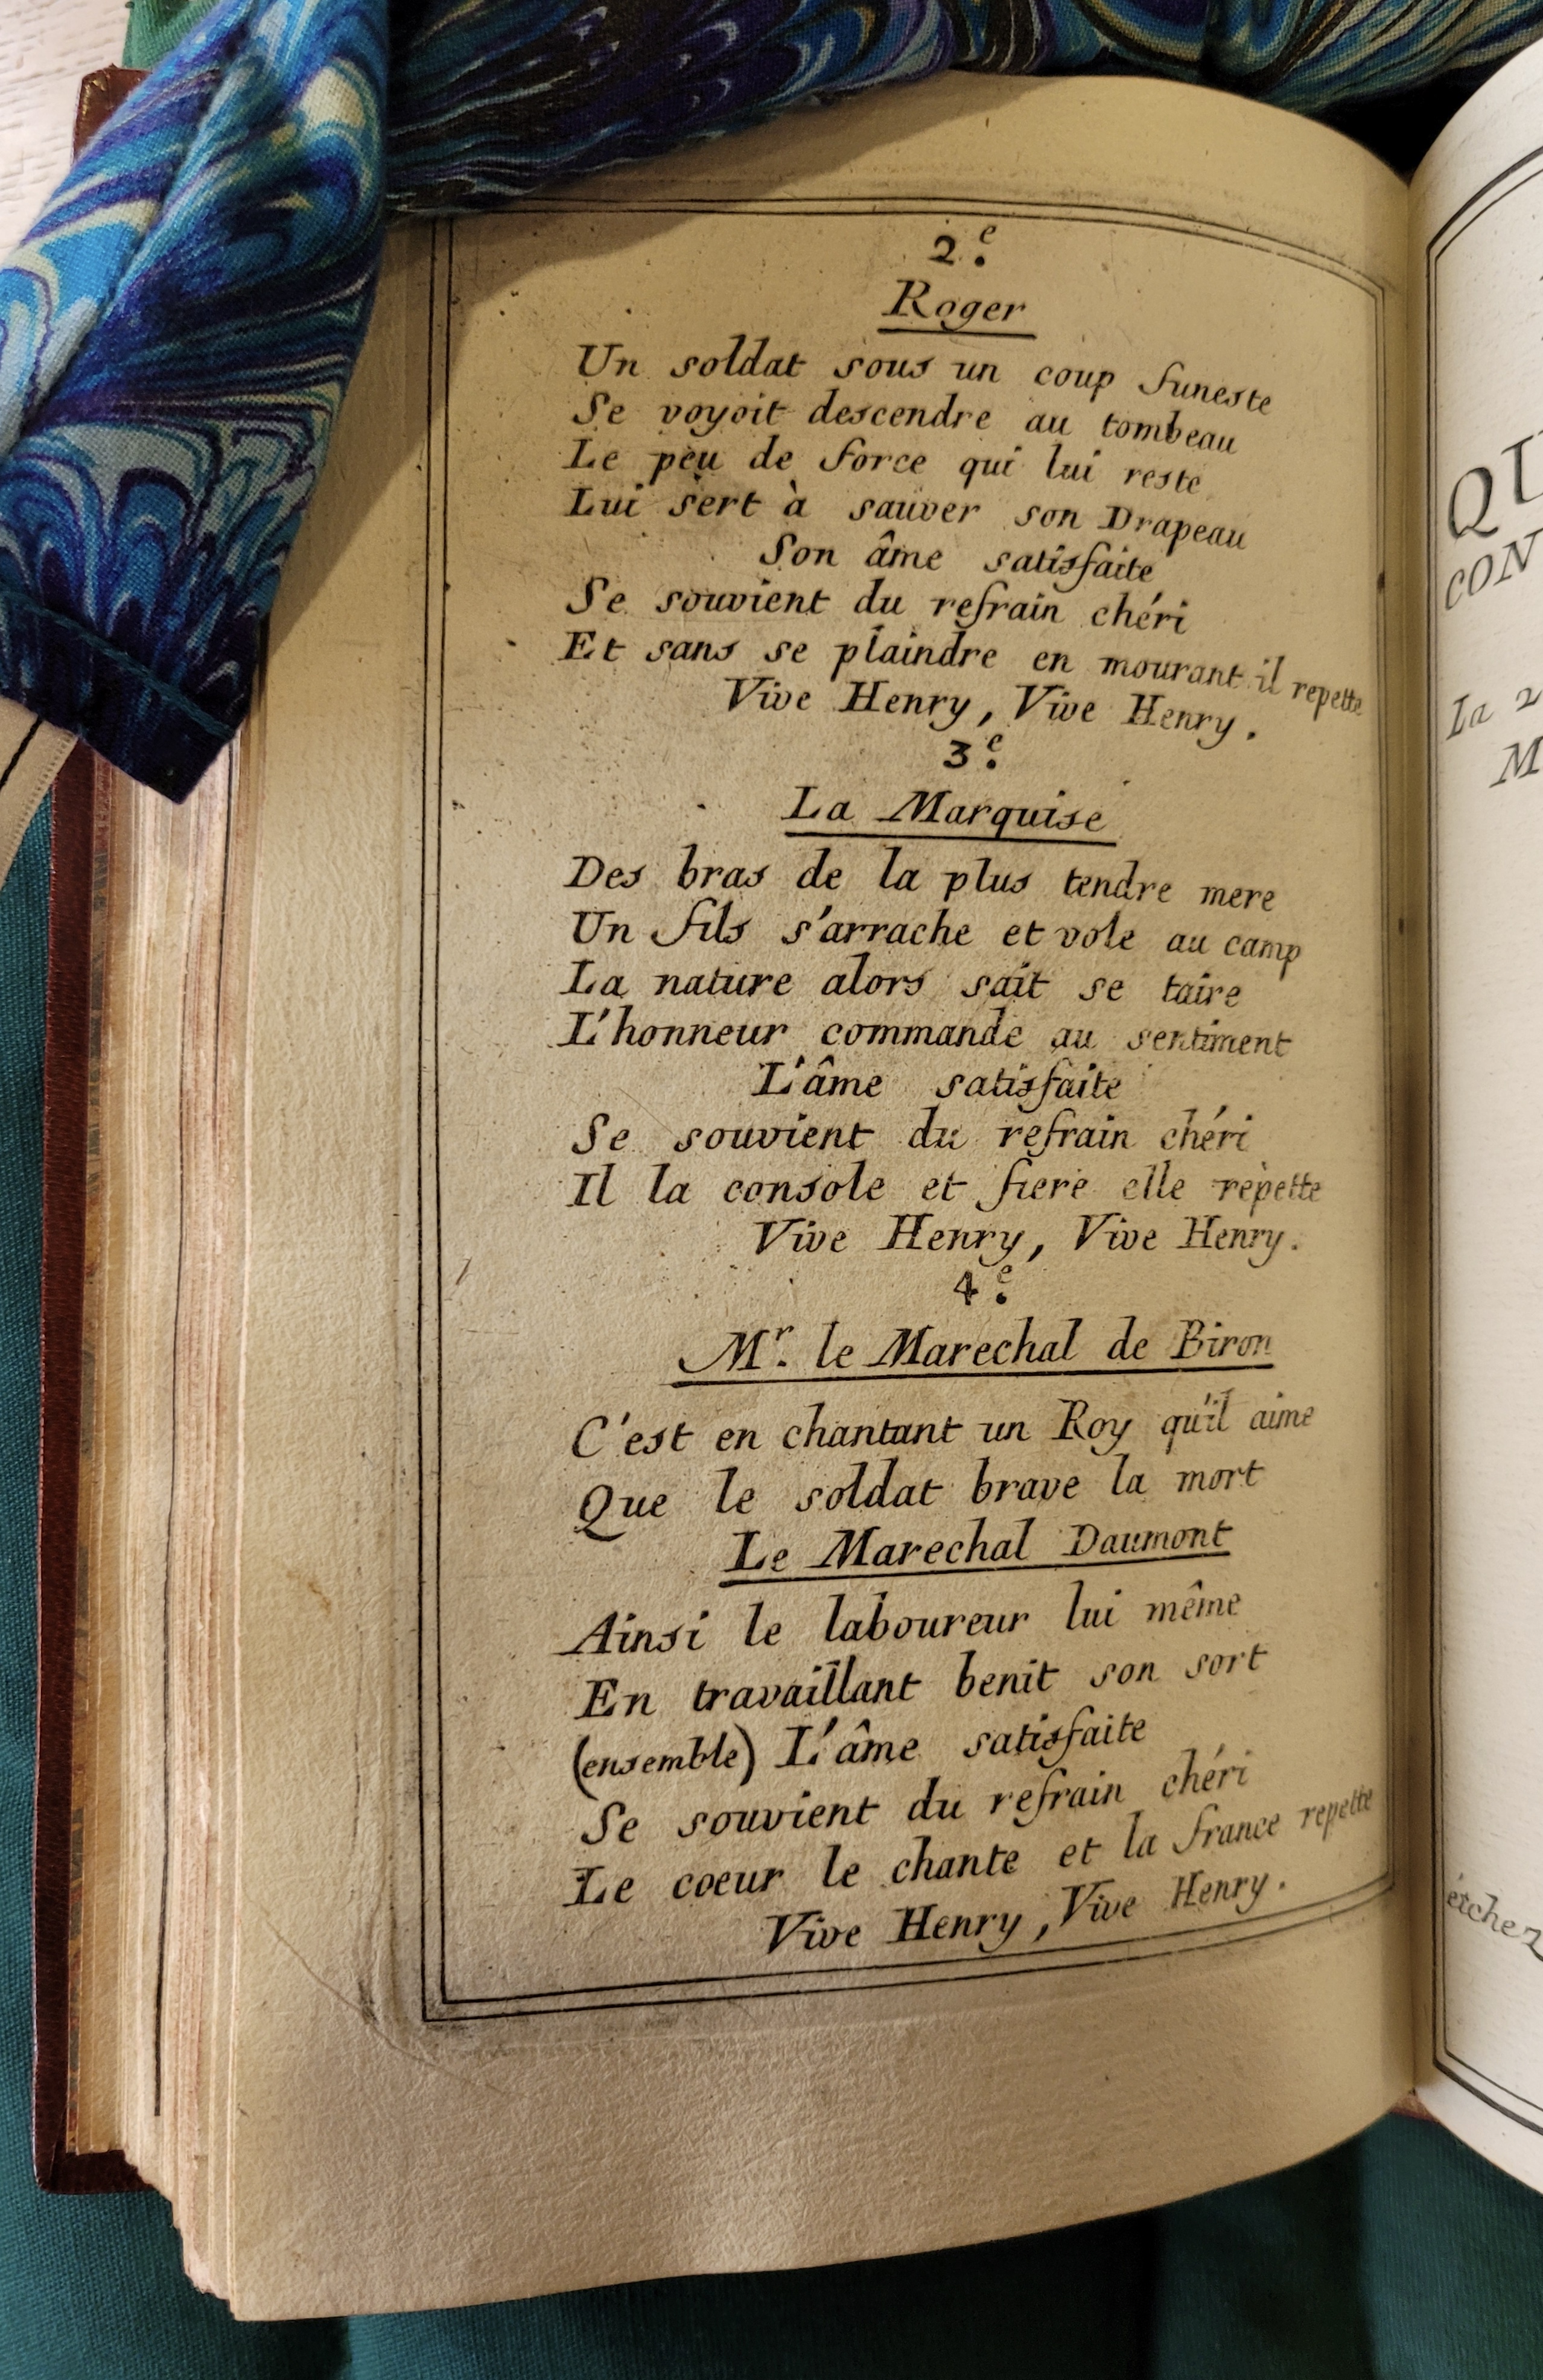 2.e
Roger
Un soldat sous un coup funeste
Se voyoit descendre au tombeau
Le peu de force qui lui reste
Lui sert à sauver son Drapeau
Son âme satisfaite
Se souvient du refrain chéri
Et sans se plaindre en mourant il repette
Vive Henry, Vive Henry.
3.e
La Marquise
Des bras de la plus tendre mere
Un fils s'arrache et vole au camp
La nature alors sait se taire
L'honneur commande au sentiment
L'âme satisfaite
Se souvient du refrain chéri
Il la console et fiere elle repette
Vive Henry, Vive Henry.
4.e
Mr. le Marechal de Biron
C'est en chantant un Roy qu'il aime
Que le soldat brave la mort
Le Marechal Daumont
Ainsi le laboureur lui même
En travaillant benit son sort
(ensemble) L'âme satisfaite
Se souvient du refrain chéri
Le coeur le chante et la france repette
Vive Henry, Vive Henry.
QU
CON
La 2
M
etchez